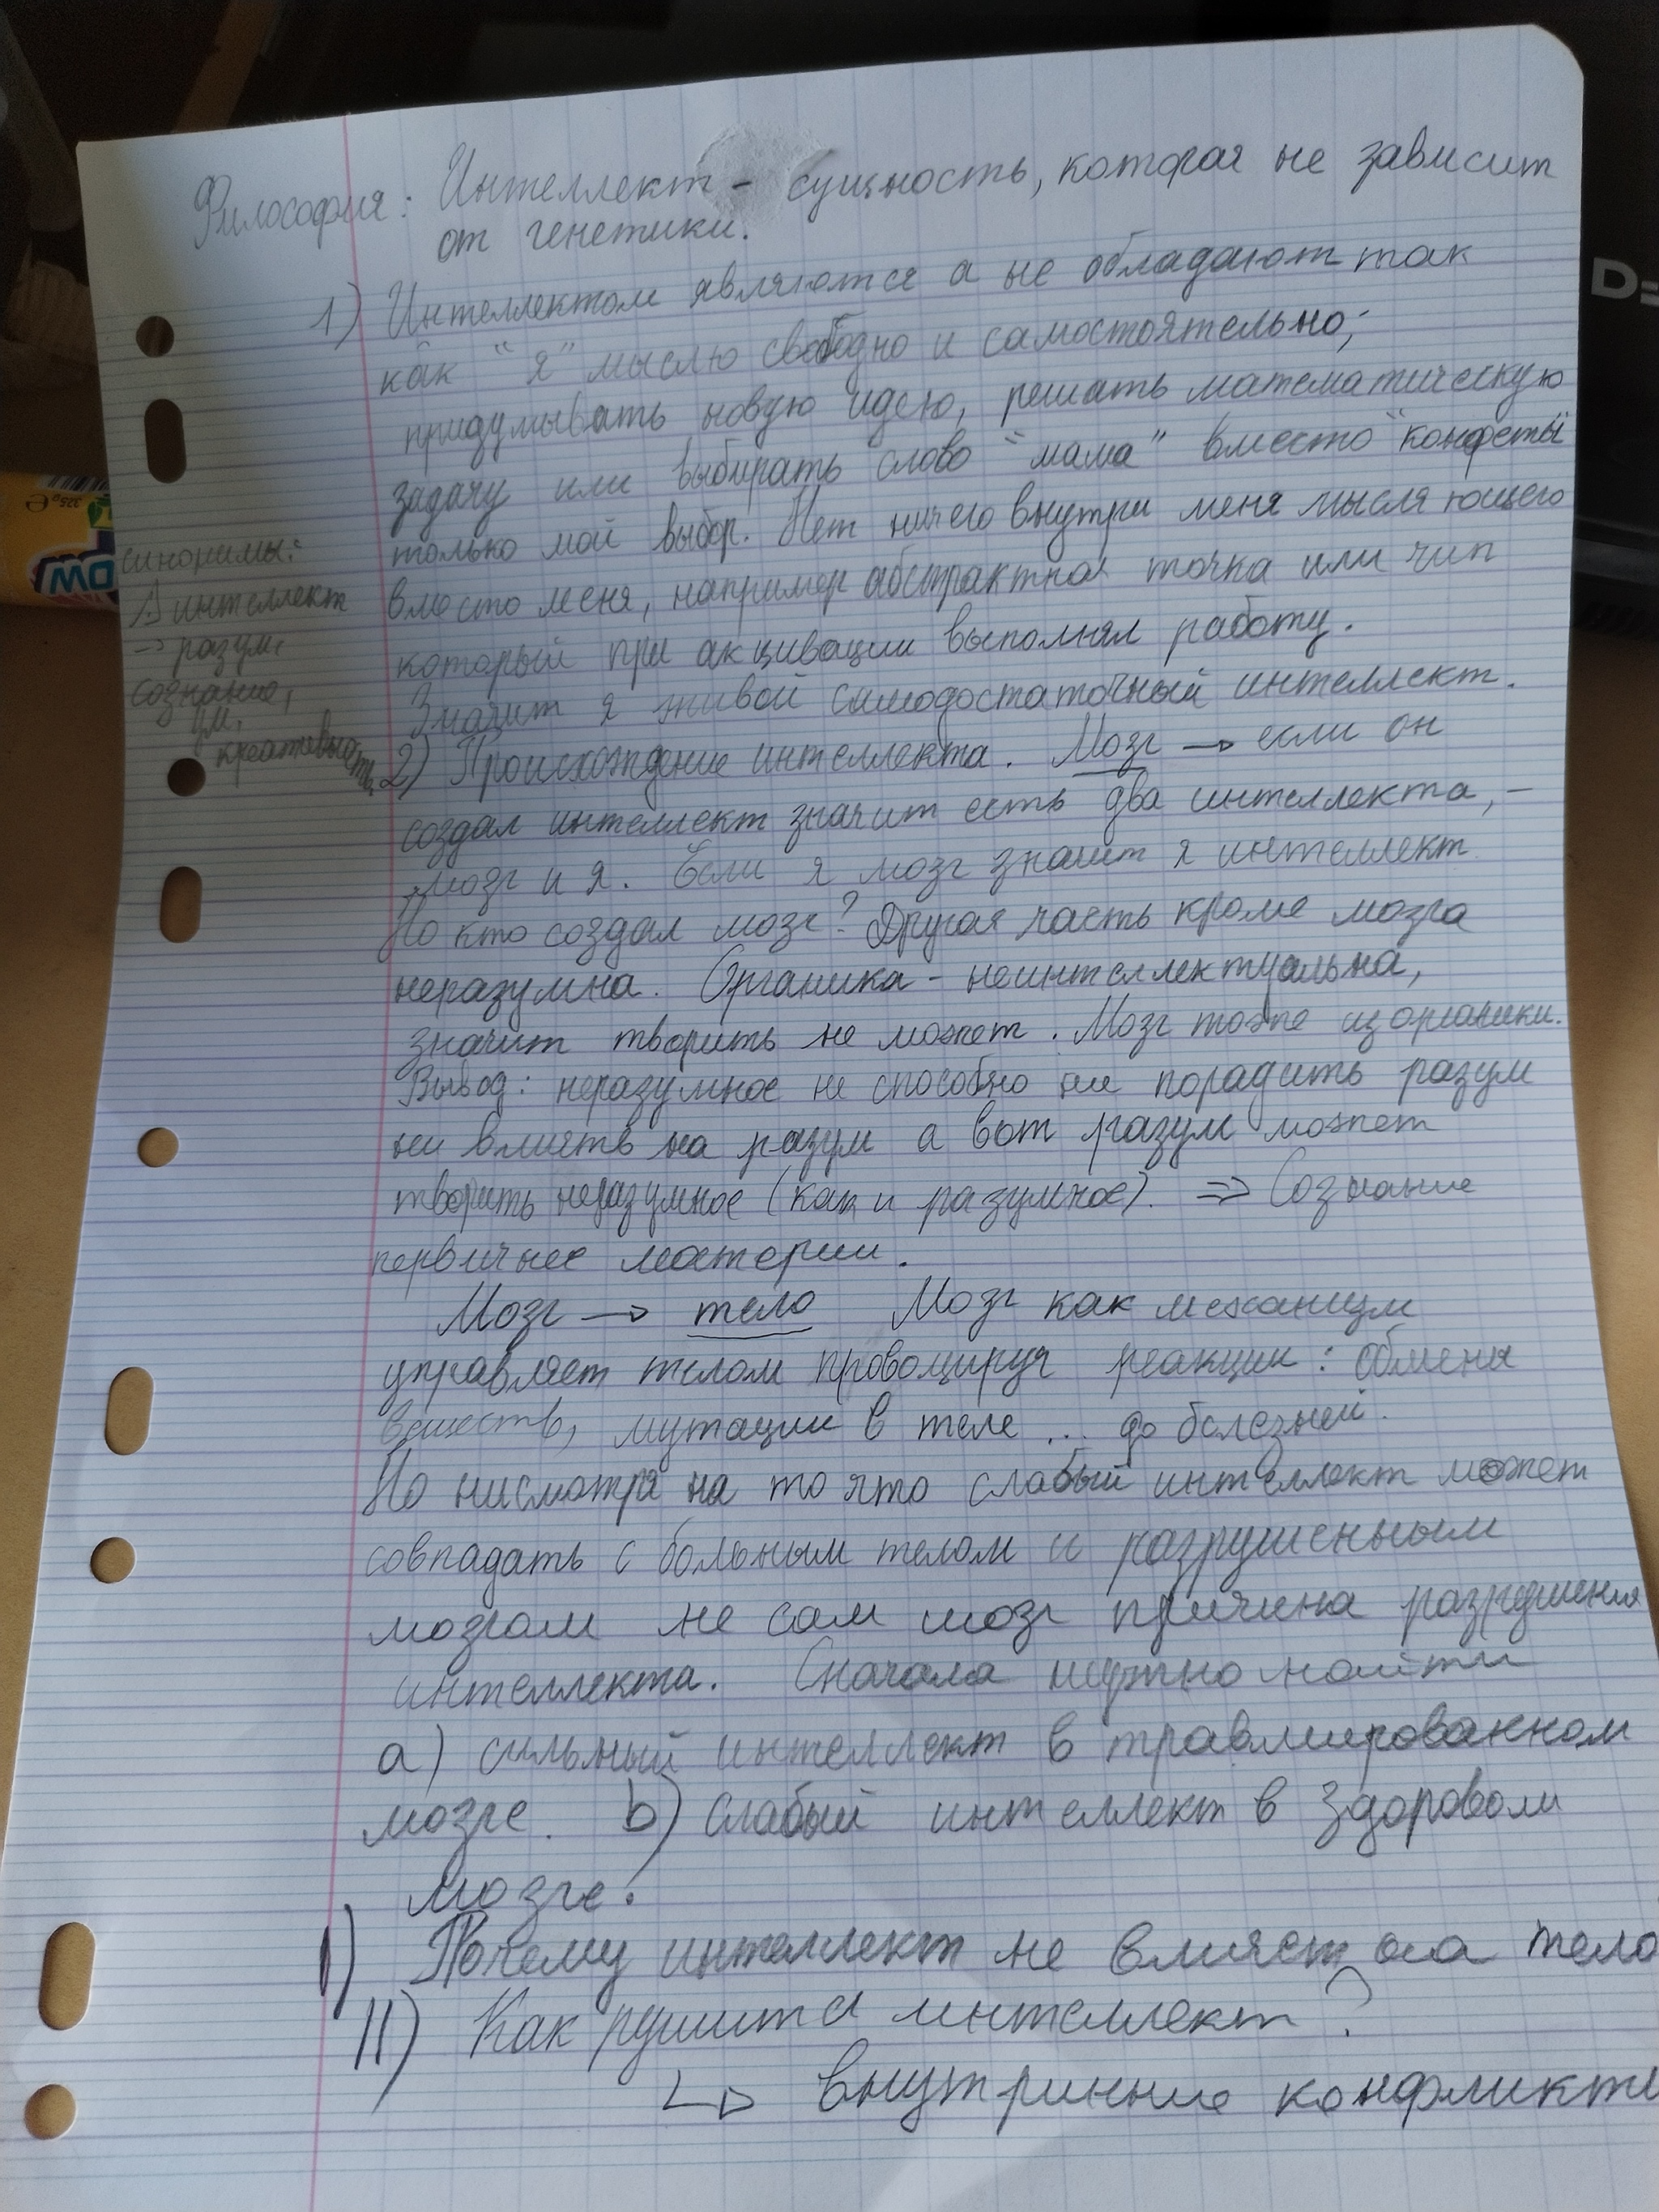 Философия: Интеллект - сущность, которая не зависит
от генетики.
1) Интеллектом являются а не обладают так
как "я" мыслю свободно и самостоятельно;
придумывать новую идею, решать математическую
задачу или выбирать слово "мама" вместо "конфеты"
только мой выбор. Нет ничего внутри меня мысля ющего
вместо меня, например абстрактная точка или чип
который при акцивации выполнял работу.
Значит я живой самодостаточный интеллект.
синонимы:
1) интеллект
→ разум,
сознание,
ум,
креативность,
2) Происхождение интеллекта. Мозг → если он
создал интеллект значит есть два интеллекта, -
мозг и я. Если я мозг значит я интеллект
Но кто создал мозг? Другая часть кроме мозга
неразумна. Органика - неинтеллектуальна,
значит творить не может. Мозг тоже из органики.
Вывод: неразумное не способно ни порадить разум
ни влиять на разум а вот разум может
творить неразумное (как и разумное). => Сознание
первичнее материи.
Мозг → тело Мозг как механизм
управляет телом провоцируя реакции: обмены
веществ, мутации в теле ... до болезней.
Но нисмотря на то что слабый интеллект может
совпадать с больным телом и разрушенным
мозгом не сам мозг причина разрушения
интеллекта. Сначала нужно найти
a) сильный интеллект в травмированном
мозге. b) слабый интеллект в здоровом
мозге.
I) Почему интеллект не влияет на тело
II) Как рушится интеллект?
↳ внутринние конфликты
D
325g e